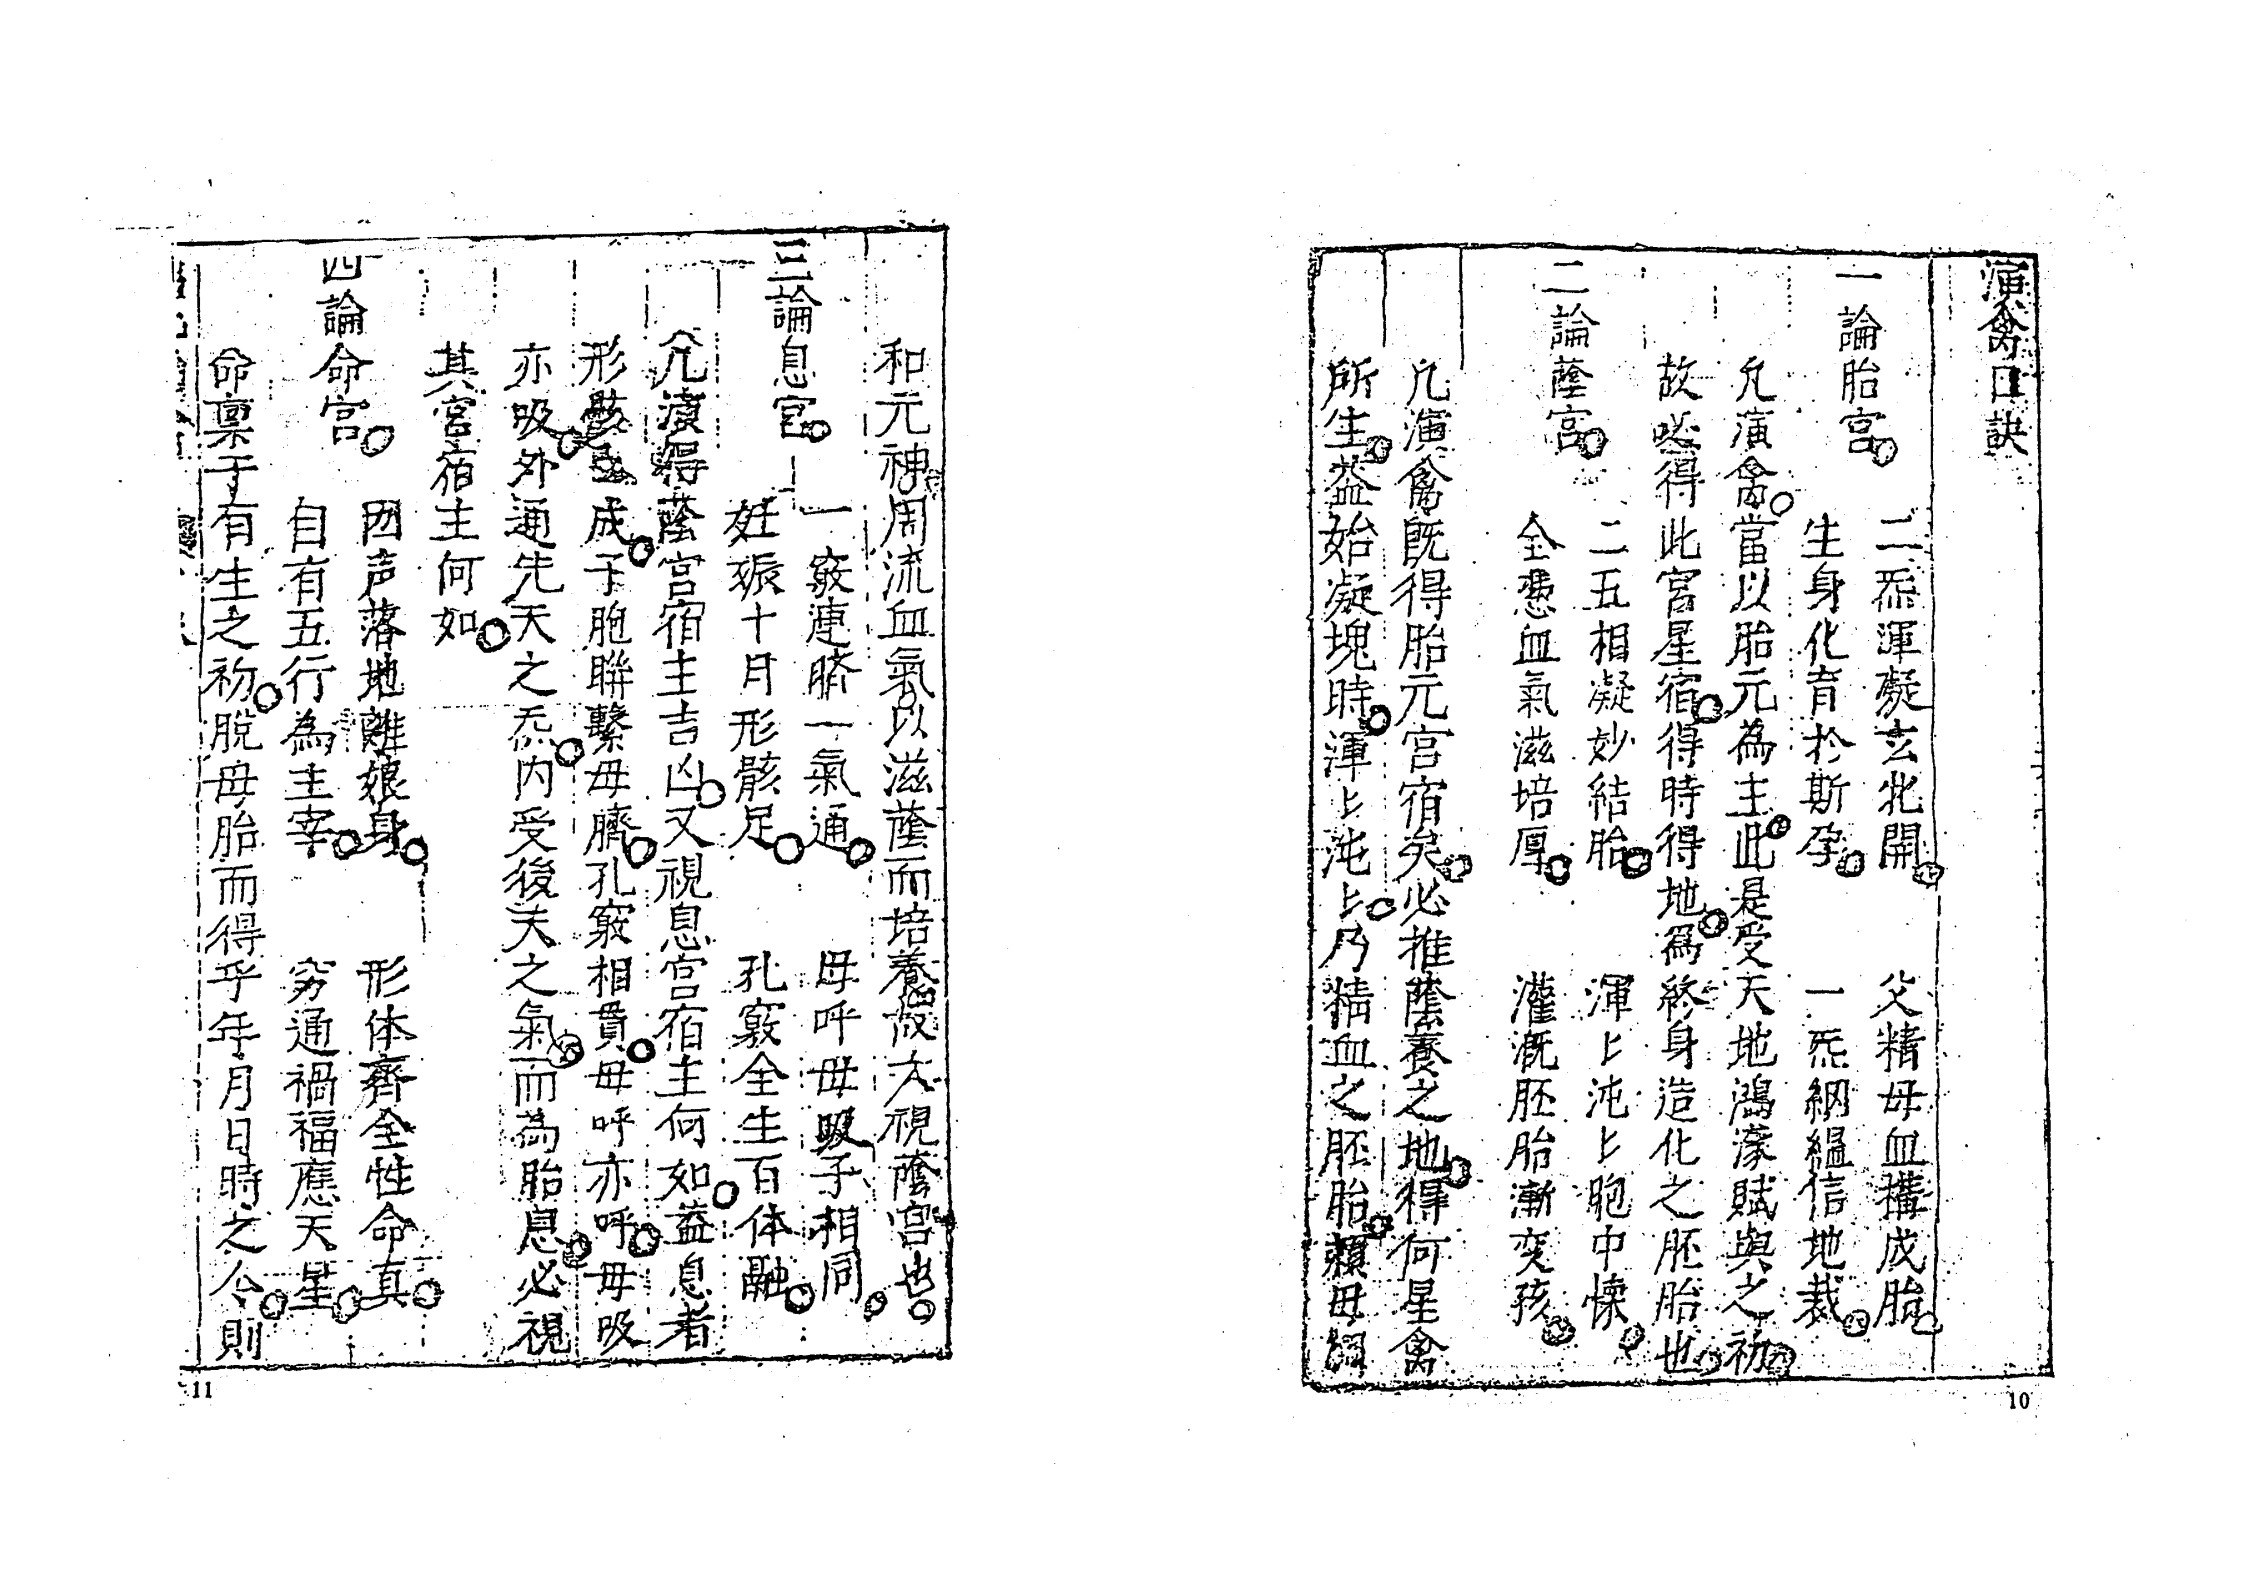 演禽口訣
一論胎宮
二炁渾凝玄牝開　父精母血搆成胎
生身化育於斯孕　一炁絪縕信地裁
凡演禽當以胎元為主此是受天地鴻濛賦與之初
故必得此宮星宿得時得地爲終身造化之胚胎也
二論蔭宮
二五相凝妙結胎　渾〻沌〻胞中懷
全憑血氣滋培厚　灌漑胚胎漸变孩
凡演禽既得胎元宮宿矣必推蔭養之地得何星禽
所生益始凝塊時渾〻沌〻乃精血之胚胎賴母
10
和元神周流血氣以滋蔭而培養故大視蔭宮也
三論息宮
一竅連臍一氣通　母呼母吸子相同
妊娠十月形骸足　孔竅全生百体融
凡演得蔭宮宿主吉凶又視息宮宿主何如益息者
形骸成于胞聨繫母臍孔竅相貫母呼亦呼母吸
亦吸外通先天之炁内受後天之氣而為胎息必視
其宮宿主何如
四論命宮
囫声落地離娘身　形体齊全性命真
自有五行為主宰　穷通禍福應天星
命禀于有生之初脱母胎而得乎年月日時之令則
11